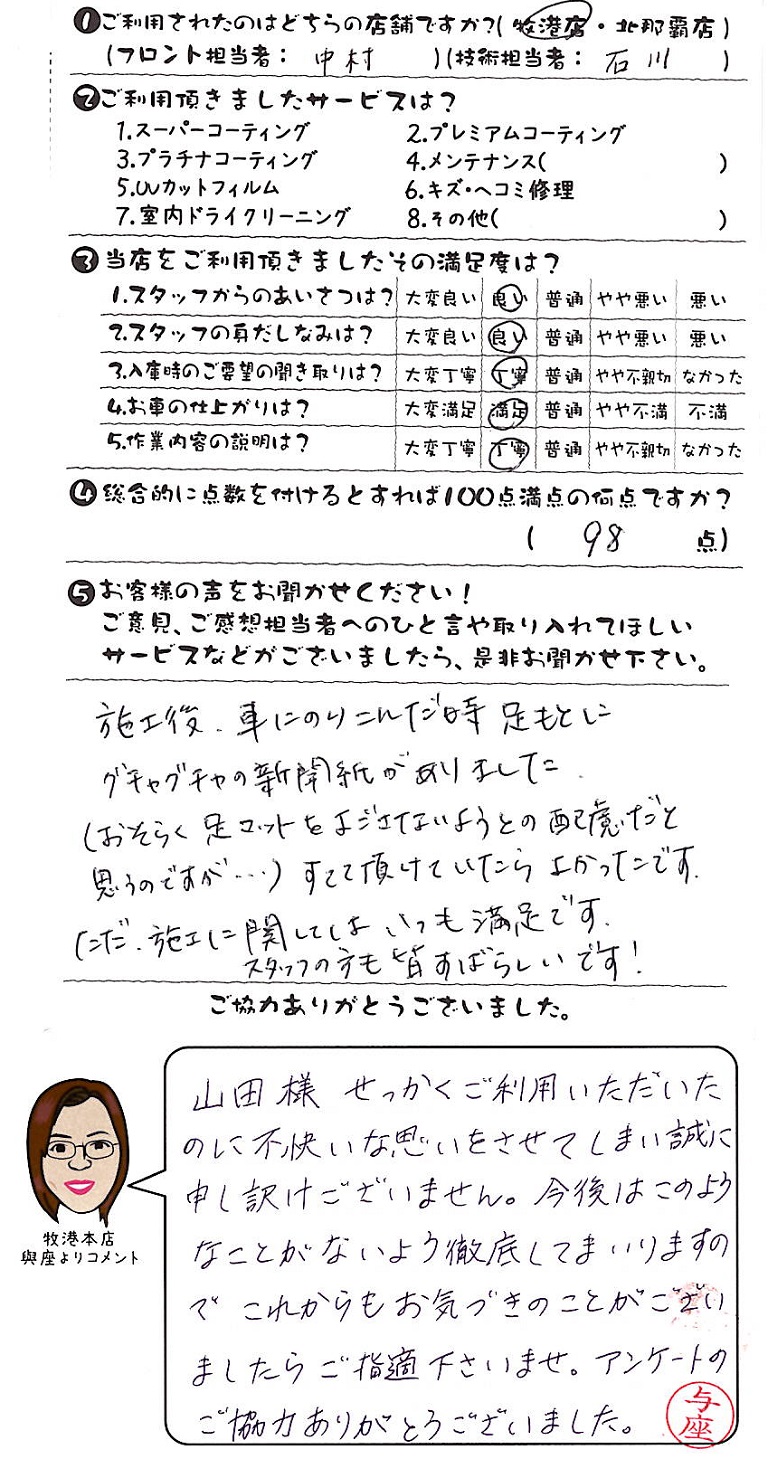 ❶ご利用されたのはどちらの店舗ですか?(牧港店・北那覇店)
(フロント担当者: 中村 )(技術担当者: 石川 )
❷ご利用頂きましたサービスは?
1.スーパーコーティング 2.プレミアムコーティング
3.プラチナコーティング 4.メンテナンス( )
5.UVカットフィルム 6.キズ・ヘコミ修理
7.室内ドライクリーニング 8.その他( )
❸当店をご利用頂きましたその満足度は?
1.スタッフからのあいさつは? 大変良い 良い 普通 やや悪い 悪い
2.スタッフの身だしなみは? 大変良い 良い 普通 やや悪い 悪い
3.入庫時のご要望の聞き取りは? 大変丁寧 丁寧 普通 やや不親切 なかった
4.お車の仕上がりは? 大変満足 満足 普通 やや不満 不満
5.作業内容の説明は? 大変丁寧 丁寧 普通 やや不親切 なかった
❹総合的に点数を付けるとすれば100点満点の何点ですか?
( 98 点)
❺お客様の声をお聞かせください!
ご意見、ご感想担当者へのひと言や取り入れてほしい
サービスなどがございましたら、是非お聞かせ下さい。
施工後、車にのりこんだ時 足もとに
グチャグチャの新聞紙がありました.
(おそらく足マットをよごさないようとの配慮だと
思うのですが…)すてて頂けていたらよかったです.
ただ、施工に関しては いつも満足です.
スタッフの方も皆すばらしいです!
ご協力ありがとうございました。
山田様 せっかくご利用いただいた
のに不快いな思いをさせてしまい誠に
申し訳けございません。今後はこのよう
なことがないよう徹底してまいりますの
で これからもお気づきのことがござい
ましたらご指適下さいませ。アンケートの
ご協力ありがとうございました。
与座
牧港本店
與座よりコメント